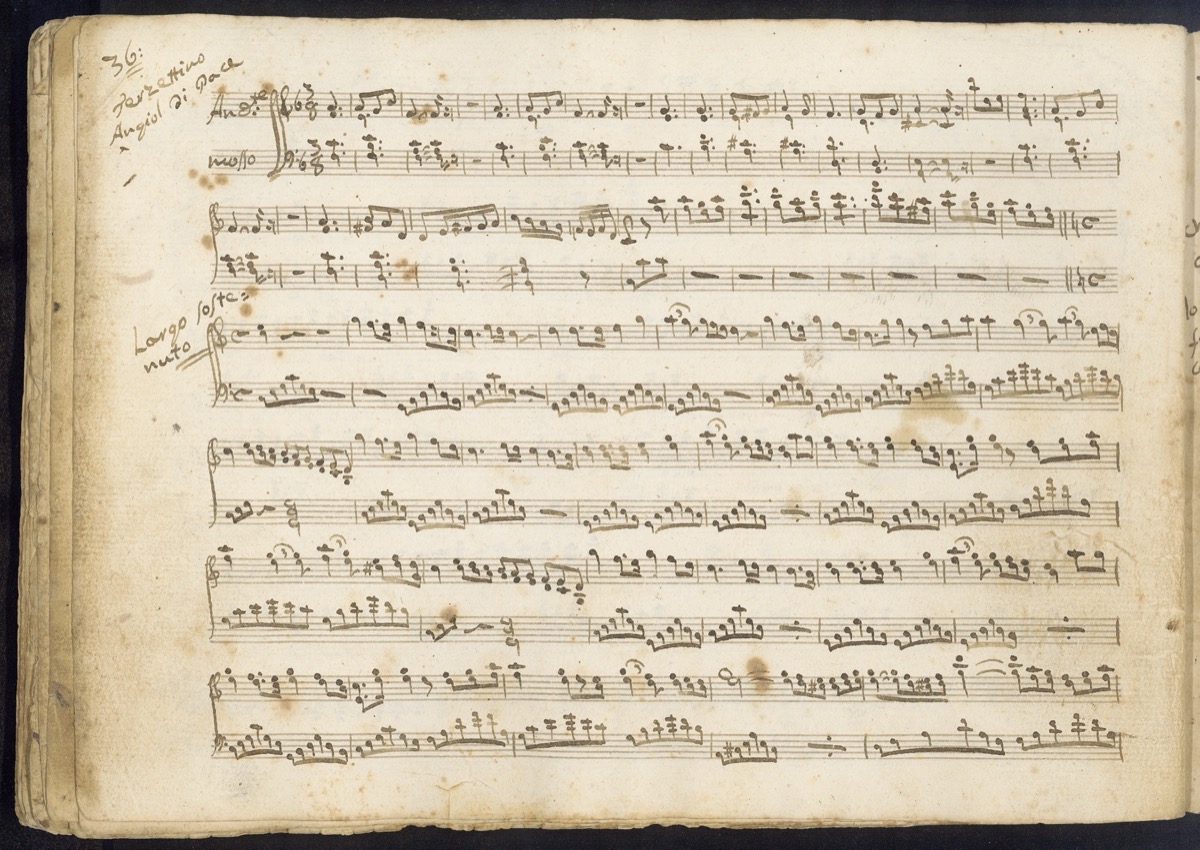 36:
Terzettino
Angiol di Pace
And.te
mosso
Largo soste=
nuto